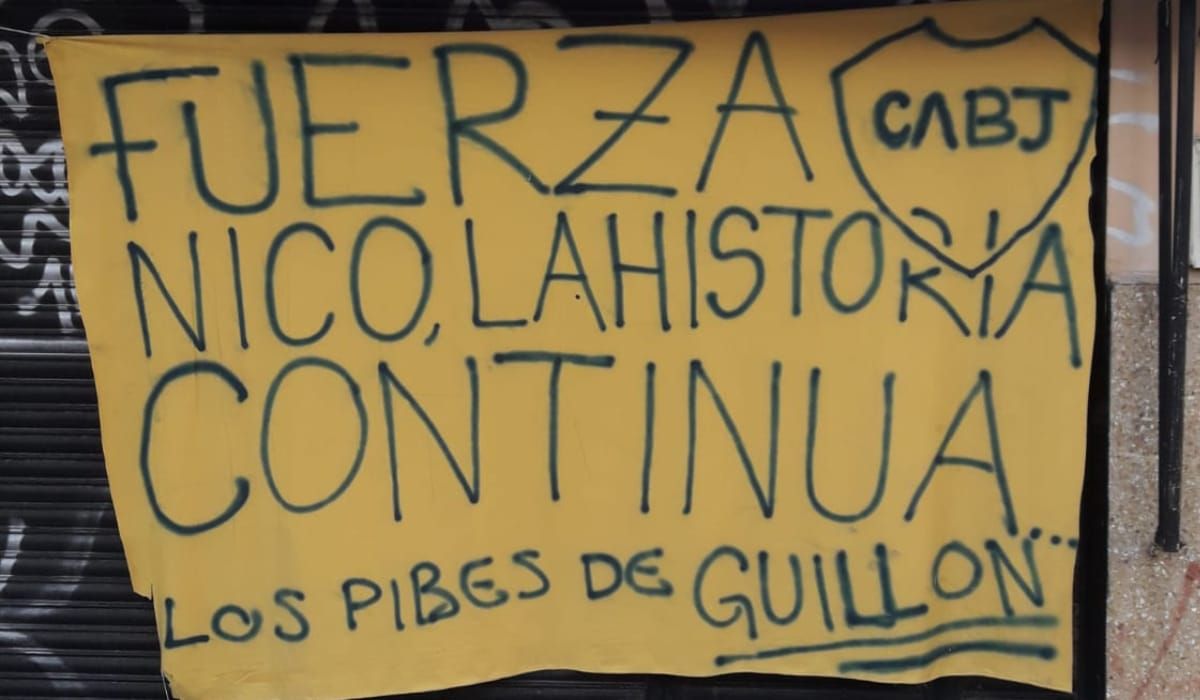 FUERZA
CABJ
NICO, LA HISTORIA
CONTINUA...
LOS PIBES DE GUILLON